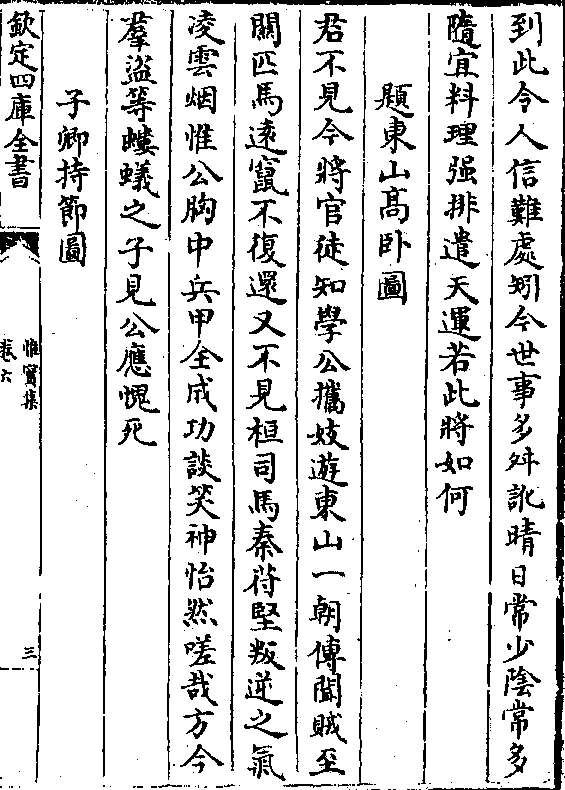 到此令人信難處矧今世事多舛訛晴日常少陰常多
隨宜料理强排遣天運若此將如何
題東山高卧圖
君不見今將官徒知學公攜妓遊東山一朝傳聞賊至
闗匹馬逺竄不復還又不見桓司馬秦苻堅叛逆之氣
凌雲烟惟公胸中兵甲全成功談笑神怡然嗟哉方今
羣盜等螻蟻之子見公應愧死
子卿持節圖
欽定四庫全書
惟實集
卷六
三